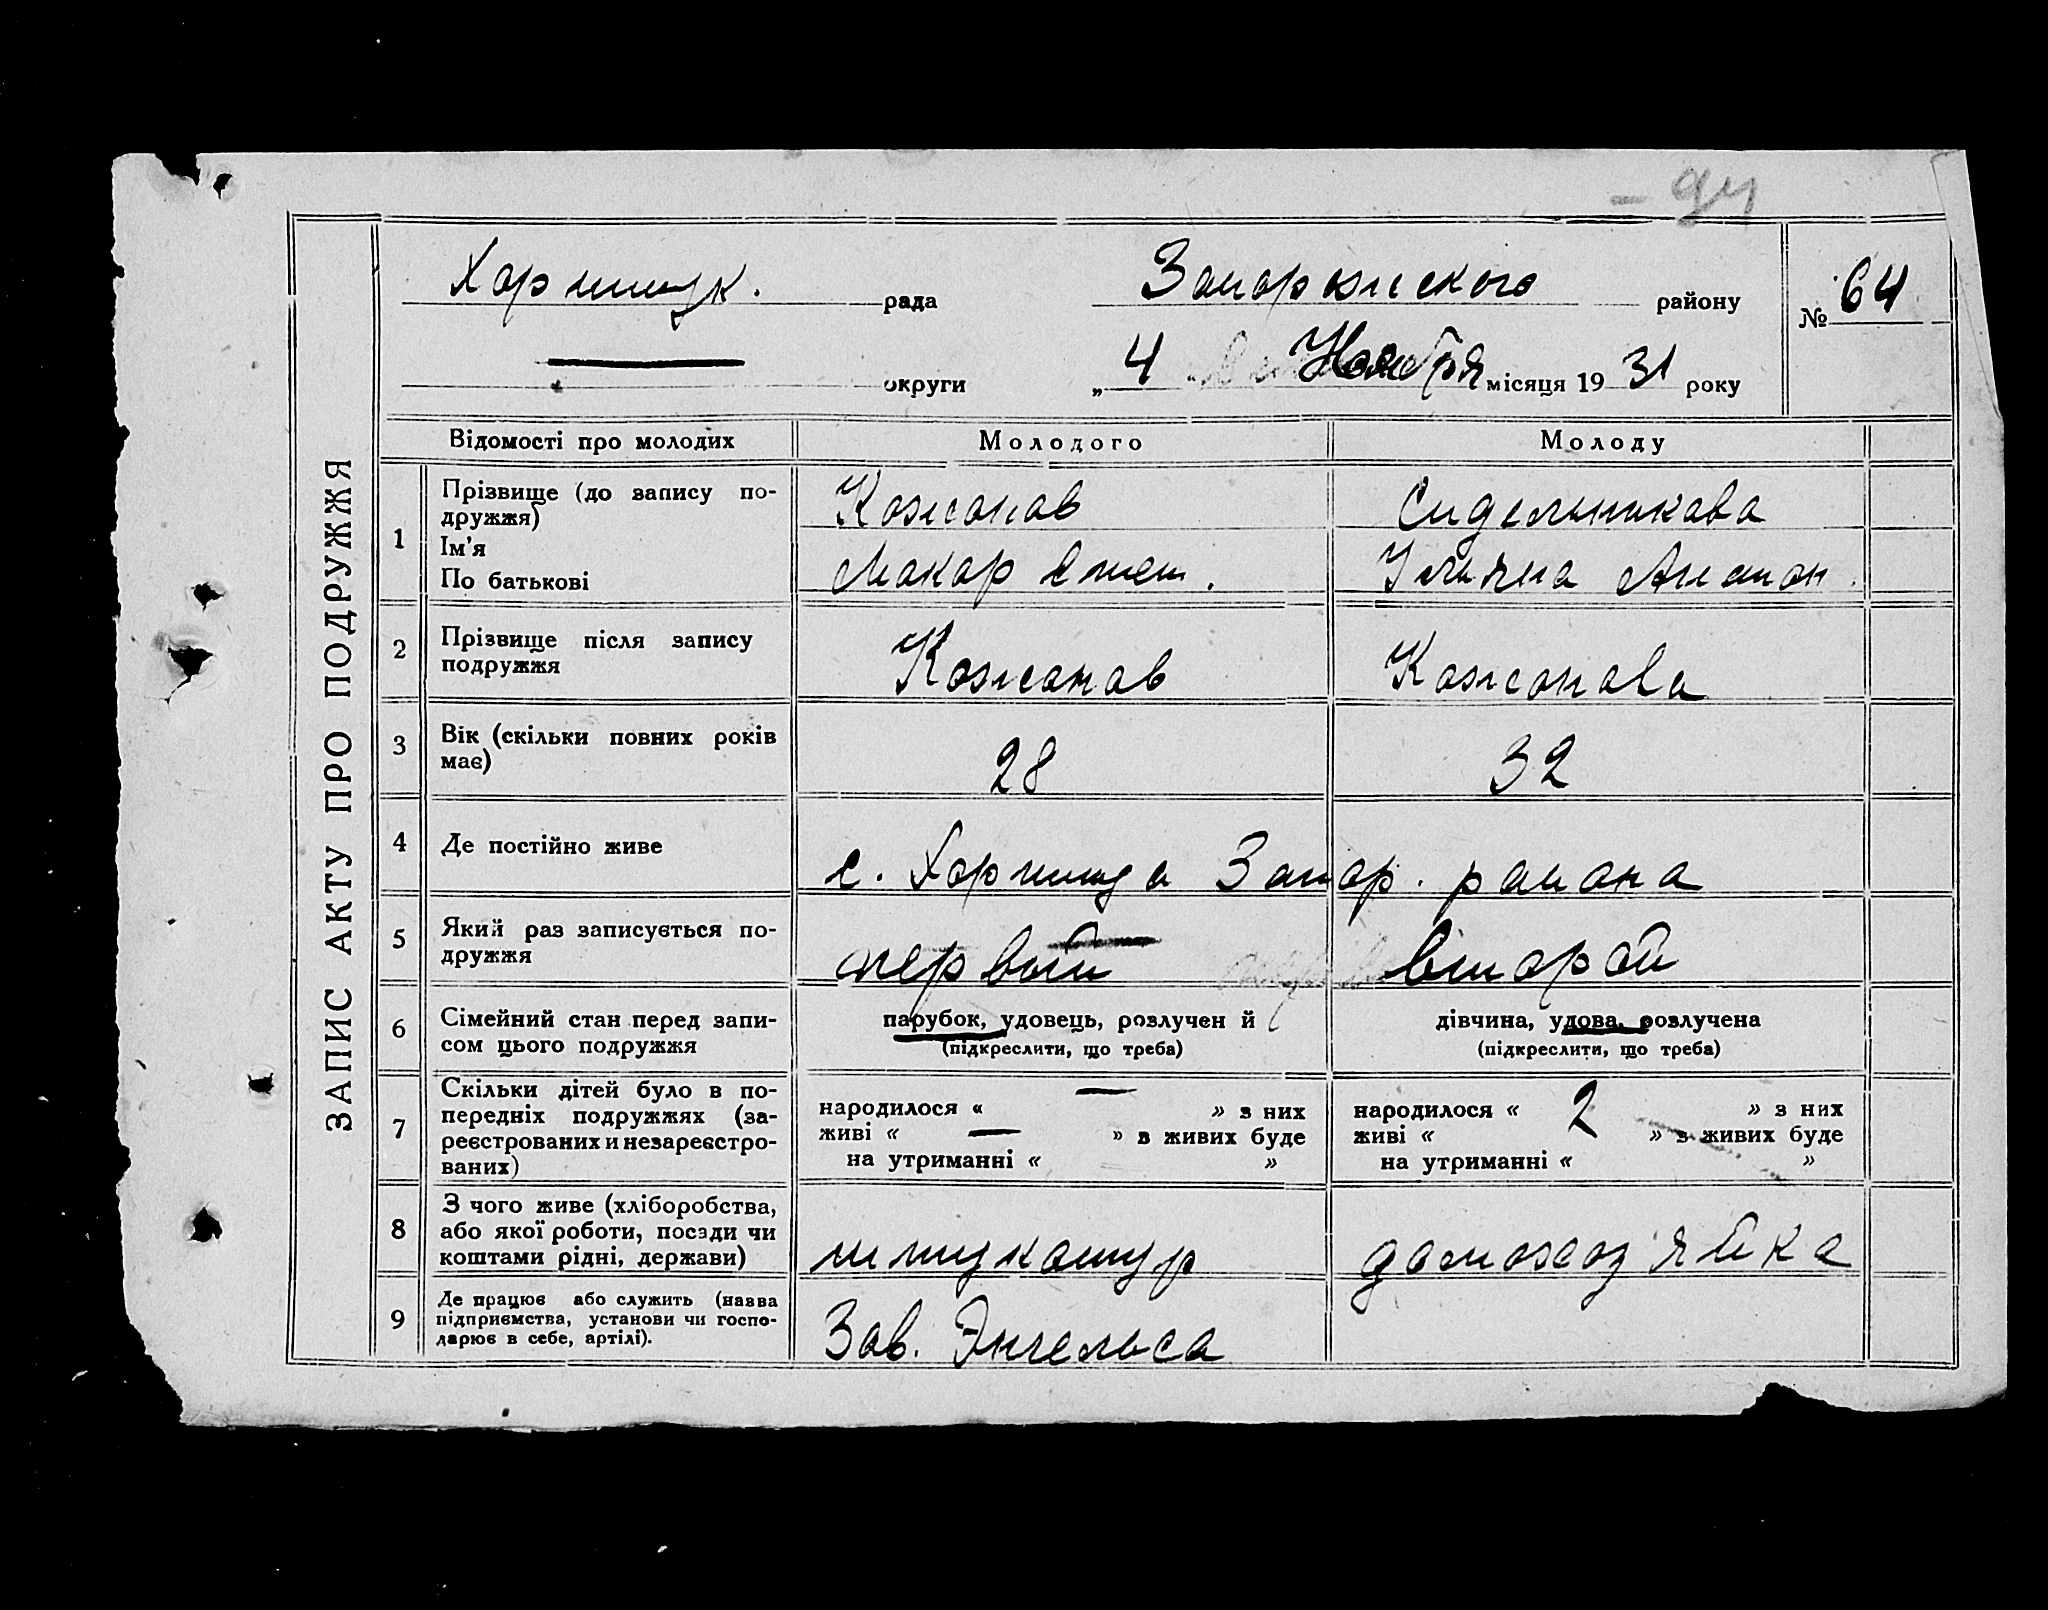 94
Хортицк. рада Запорожского району № 64
округи „ 4 Ноября місяця 19 31 року
ЗАПИС АКТУ ПРО ПОДРУЖЖЯ
Відомості про молодих Молодого Молоду
1 Прізвище (до запису по-
дружжя) Кожанов Сидельникова
Ім'я
По батькові Макар Ульяна Антон.
2 Прізвище після запису
подружжя Кожанов Кожанова
3 Вік (скільки повних років
має) 28 32
4 Де постійно живе с. Хортица Запор. раиона
5 Який раз записується по-
дружжя первый второй
6 Сімейний стан перед запи-
сом цього подружжя
парубок, удовець, розлучен й
(підкреслити, що треба)
дівчина, удова, розлучена
(підкреслити, що треба)
7 Скільки дітей було в по-
передніх подружжях (за-
реєстрованих и незареєстро-
ваних)
народилося « — » з них
живі « — » з живих буде
на утриманні « »
народилося « 2 » з них
живі « » з живих буде
на утриманні « »
8 З чого живе (хліборобства,
або якої роботи, посади чи
коштами рідні, держави) штукатур домохозяйка
9 Де працює або служить (назва
підприємства, установи чи госпо-
дарює в себе, артілі). Зав. Энгельса